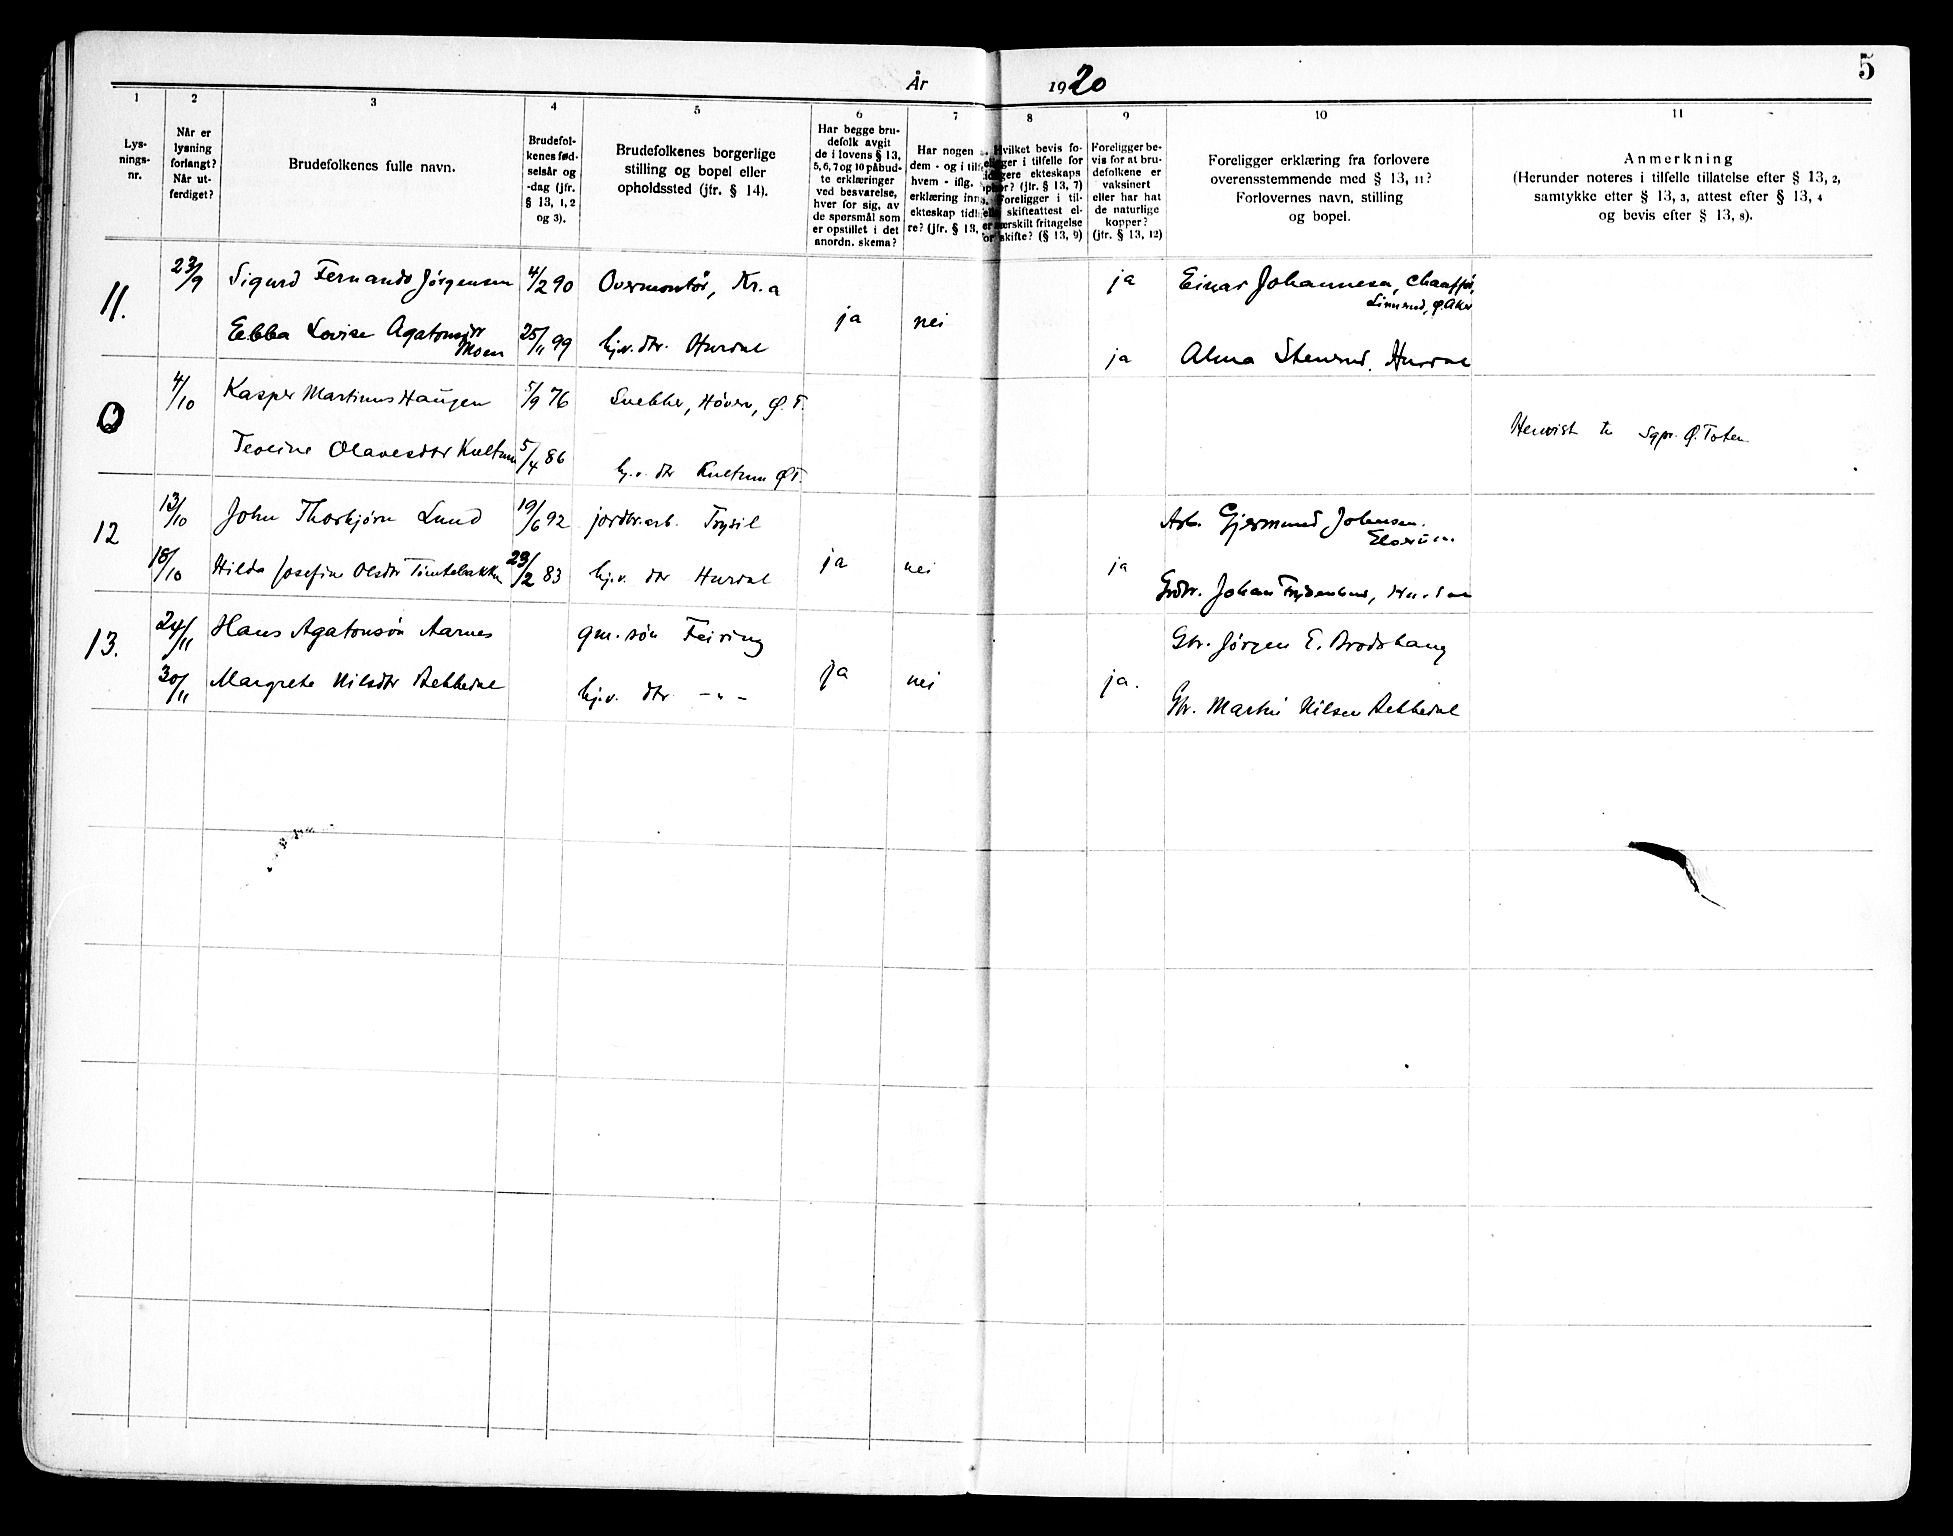 År 1920
5
1 2 3 4 5 6 7 8 9 10 11
Lys-
nings-
nr.
Når er
lysning
forlangt?
Når ut-
ferdiget?
Brudefolkenes fulle navn.
Brudefol-
kenes fød-
selsår og
-dag (jfr.
§ 13, 1, 2
og 3).
Brudefolkenes borgerlige
stilling og bopel eller
opholdssted (jfr. § 14).
Har begge bru-
defolk avgit
de i lovens § 13,
5, 6, 7 og 10 påbud-
te erklæringer
ved besvarelse,
hver for sig, av
de spørsmål som
er opstillet i det
anordn. skema?
Har nogen
dem - og i tilf.
hvem - iflg.
erklæring inn
ekteskap tidl
re? (jfr. § 13,
Hvilket bevis fo-
religger i tilfelle for
tidligere ekteskaps
ophør? (jfr. § 13, 7)
Foreligger i til-
felle skifteattest el-
ler særskilt fritagelse
for skifte? (§ 13, 9)
Foreligger be-
vis for at bru-
defolkene er
vaksinert
eller har hat
de naturlige
kopper?
(jfr. § 13, 12)
Foreligger erklæring fra forlovere
overensstemmende med § 13, 11?
Forlovernes navn, stilling
og bopel.
Anmerkning
(Herunder noteres i tilfelle tillatelse efter § 13, 2,
samtykke efter § 13, 3, attest efter § 13, 4
og bevis efter § 13, 8).
11. 23/9 Sigurd Fernando Jørgensen 4/2 90 Overmontør, Kr.a ja nei ja Einar Johannesen, Chaufför,
Linnerud, Ø. Aker
Ebba Lovise Agatonsdtr
Moen 25/11 99 hj.v. dtr. Hurdal ja Alma Stensrud, Hurdal
0 4/10 Kasper Martinius Haugen 5/9 76 Snekker, Høver, Ø. T.
Teoline Olavesdtr Kultum 5/4 86 hj.v. dtr Kultum Ø T. Henvist til Sgpr. Ø. Toten
12 13/10 John Thorbjørn Lund 19/6 92 jordbr.arb. Trysil Arb. Gjermund Johansen.
Elverum.
18/10 Hilda Josefine Olsdtr Tømtebakken 23/2 83 hj.v. dtr Hurdal ja nei ja Grdbr. Johan Frydenlund, Hurdal
13. 24/11 Hans Agatonsøn Aarnes gm. søn Feiring Gbr. Jørgen E. Brodshaug
30/11 Margrete Nilsdtr Dekkedal hj.v. dtr -"- ja nei ja. Gbr. Martin Nilsen Dekkedal